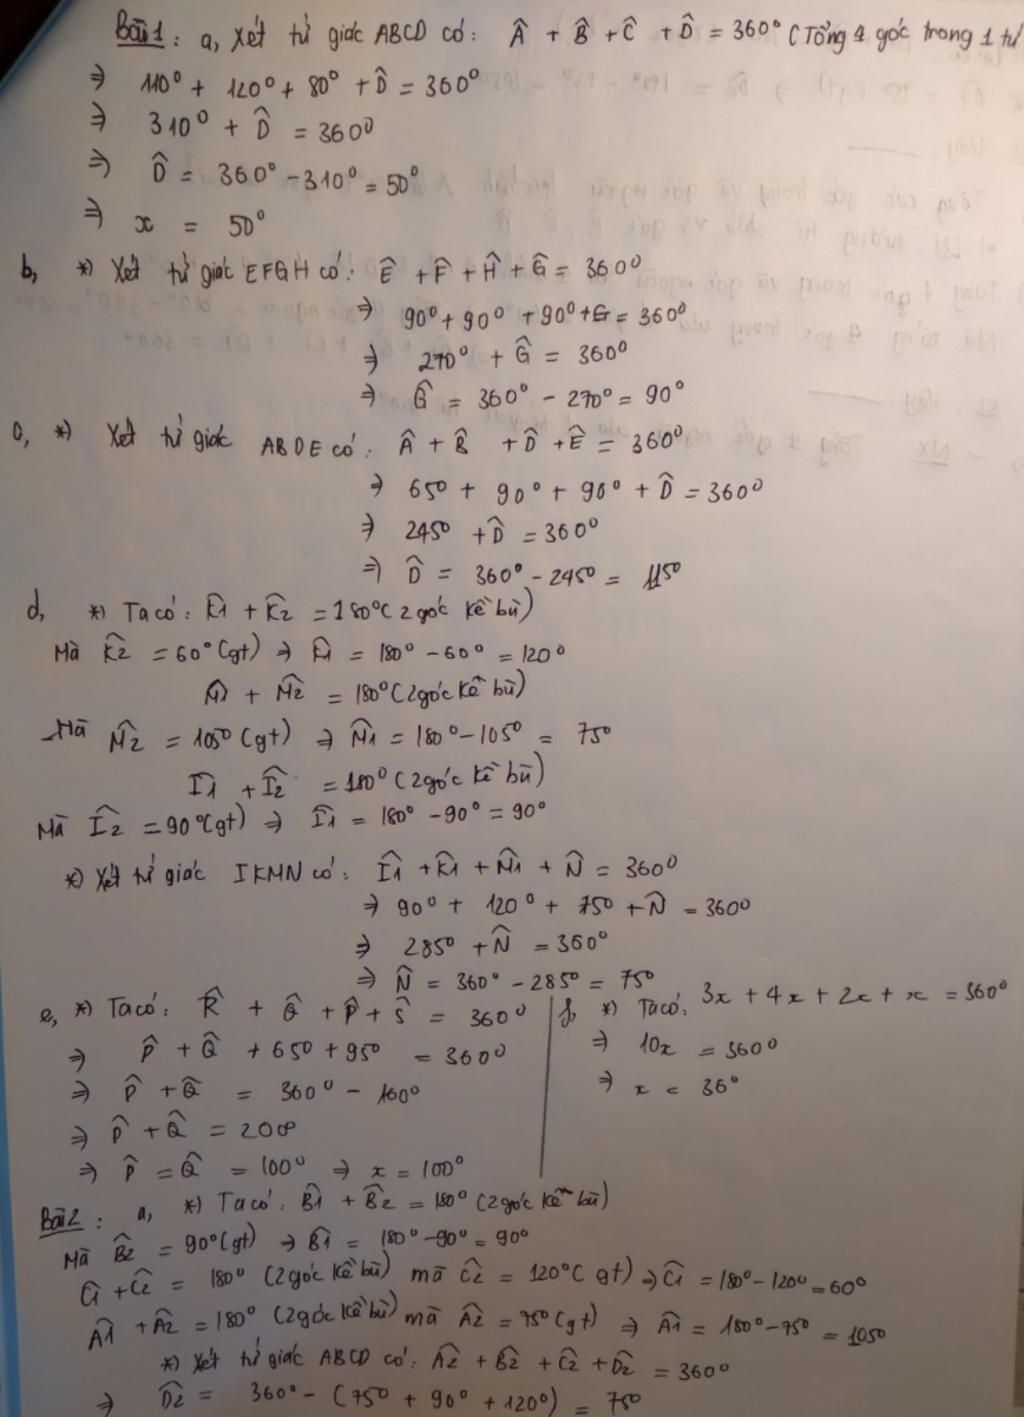 Bài 1: a, Xét tứ giác ABCD có: Â + B̂ + Ĉ + D̂ = 360° (Tổng 4 góc trong 1 tứ
⇒ 110° + 120° + 80° + D̂ = 360°
⇒ 310° + D̂ = 360°
⇒ D̂ = 360° - 310° = 50°
⇒ x = 50°
b, *) Xét tứ giác EFGH có: Ê + F̂ + Ĥ + Ĝ = 360°
⇒ 90° + 90° + 90° + G = 360°
⇒ 270° + Ĝ = 360°
⇒ Ĝ = 360° - 270° = 90°
c, *) Xét tứ giác ABDE có: Â + B̂ + D̂ + Ê = 360°
⇒ 65° + 90° + 90° + D̂ = 360°
⇒ 245° + D̂ = 360°
⇒ D̂ = 360° - 245° = 115°
d, *) Ta có: K̂1 + K̂2 = 180° (2 góc kề bù)
Mà K̂2 = 60° (gt) ⇒ K̂1 = 180° - 60° = 120°
M̂1 + M̂2 = 180° (2 góc kề bù)
Mà M̂2 = 105° (gt) ⇒ M̂1 = 180° - 105° = 75°
Î1 + Î2 = 180° (2 góc kề bù)
Mà Î2 = 90° (gt) ⇒ Î1 = 180° - 90° = 90°
*) Xét tứ giác IKMN có: Î1 + K̂1 + M̂1 + N̂ = 360°
⇒ 90° + 120° + 75° + N̂ = 360°
⇒ 285° + N̂ = 360°
⇒ N̂ = 360° - 285° = 75°
e, *) Ta có: R̂ + Q̂ + P̂ + Ŝ = 360°
⇒ P̂ + Q̂ + 65° + 95° = 360°
⇒ P̂ + Q̂ = 360° - 160°
⇒ P̂ + Q̂ = 200°
⇒ P̂ = Q̂ = 100° ⇒ x = 100°
f, *) Ta có: 3x + 4x + 2x + x = 360°
⇒ 10x = 360°
⇒ x = 36°
Bài 2: a, *) Ta có: B̂1 + B̂2 = 180° (2 góc kề bù)
Mà B̂2 = 90° (gt) ⇒ B̂1 = 180° - 90° = 90°
Ĉ1 + Ĉ2 = 180° (2 góc kề bù) mà Ĉ2 = 120° (gt) ⇒ Ĉ1 = 180° - 120° = 60°
Â1 + Â2 = 180° (2 góc kề bù) mà Â2 = 75° (gt) ⇒ Â1 = 180° - 75° = 105°
*) Xét tứ giác ABCD có: Â2 + B̂2 + Ĉ2 + D̂2 = 360°
⇒ D̂2 = 360° - (75° + 90° + 120°) = 75°